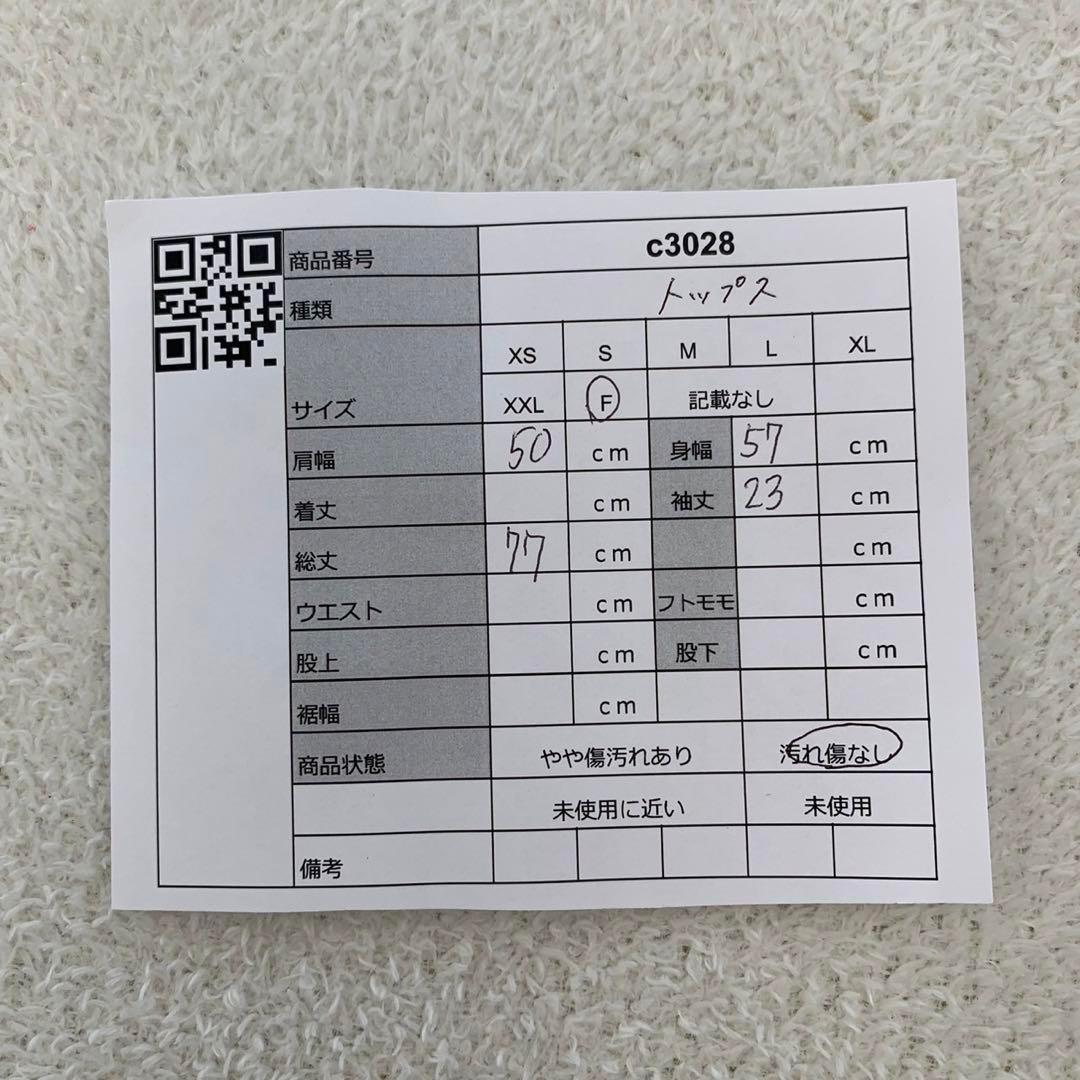 商品番号 c3028
種類 トップス
XS S M L XL
サイズ XXL F 記載なし
肩幅 50 cm 身幅 57 cm
着丈 cm 袖丈 23 cm
総丈 77 cm cm
ウエスト cm フトモモ cm
股上 cm 股下 cm
裾幅 cm
商品状態 やや傷汚れあり 汚れ傷なし
未使用に近い 未使用
備考